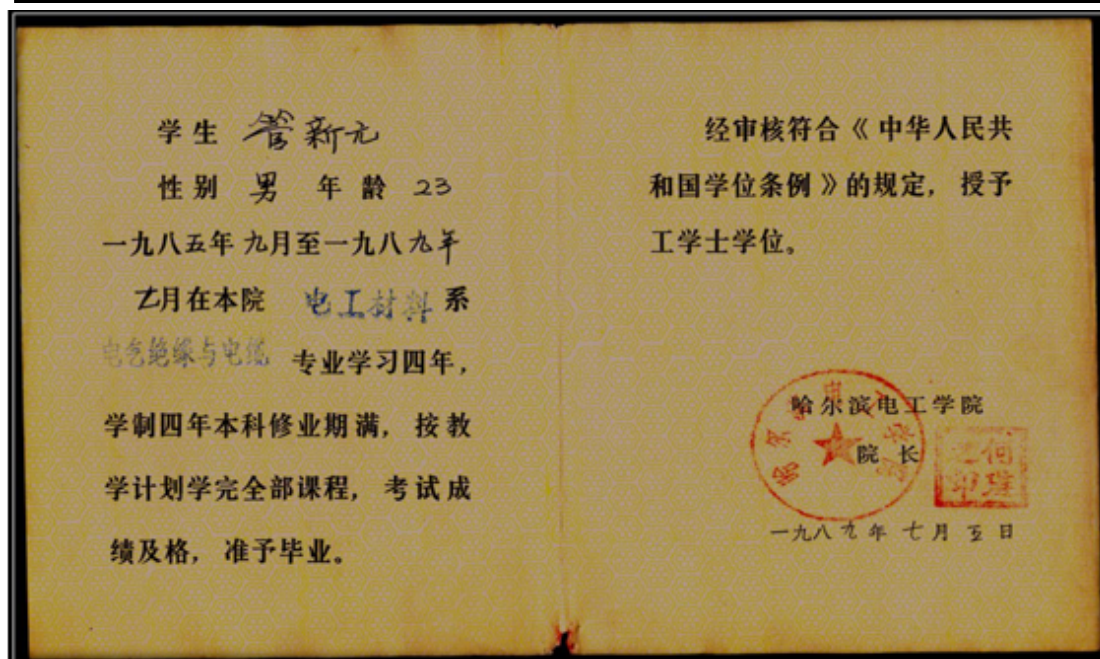 学生 管新元
性别 男 年龄 23
一九八五年九月至一九八九年
七月在本院 电工材料 系
电气绝缘与电缆 专业学习四年，
学制四年本科修业期满，按教
学计划学完全部课程，考试成
绩及格，准予毕业。
经审核符合《中华人民共
和国学位条例》的规定，授予
工学士学位。
哈尔滨电工学院
院长
哈尔滨电工学院
一九八九年七月五日